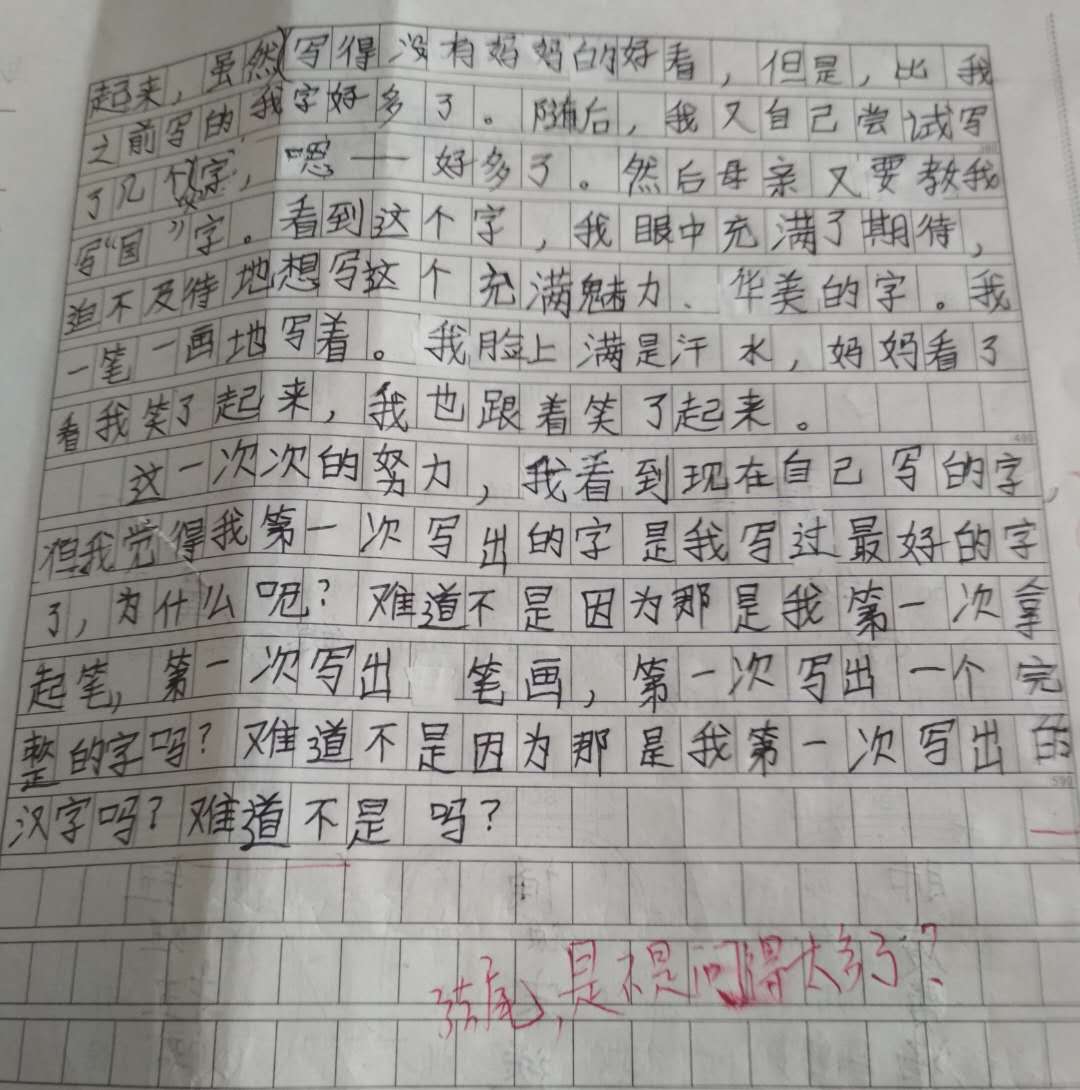 起来，虽然写得没有妈妈的好看，但是，比我
之前写的我字好多了。随后，我又自己尝试写
了几个字，嗯——好多了。然后母亲又要教我
写“国”字。看到这个字，我眼中充满了期待，
迫不及待地想写这个充满魅力、华美的字。我
一笔一画地写着。我脸上满是汗水，妈妈看了
看我笑了起来，我也跟着笑了起来。
这一次次的努力，我看到现在自己写的字，
但我觉得我第一次写出的字是我写过最好的字
了，为什么呢？难道不是因为那是我第一次拿
起笔，第一次写出笔画，第一次写出一个完
整的字吗？难道不是因为那是我第一次写出的
汉字吗？难道不是吗？
结尾，是不是问得太多了？